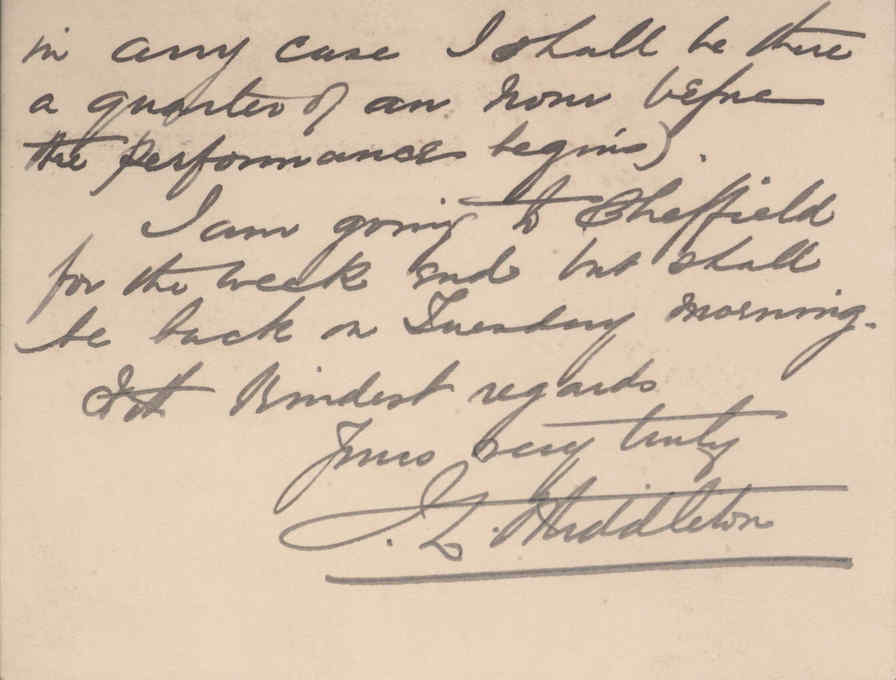 in any case I shall be there
a quarter of an hour before
the performances begins).
I am going to Sheffield
for the week end but shall
be back on Tuesday morning.
With kindest regards
Yours very truly
J. L. Middleton